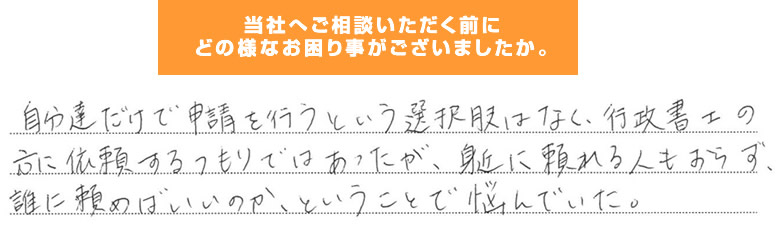 当社へご相談いただく前に
どの様なお困り事がございましたか。
自分達だけで申請を行うという選択肢はなく、行政書士の
方に依頼するつもりではあったが、身近に頼れる人もおらず、
誰に頼めばいいのか、ということで悩んでいた。